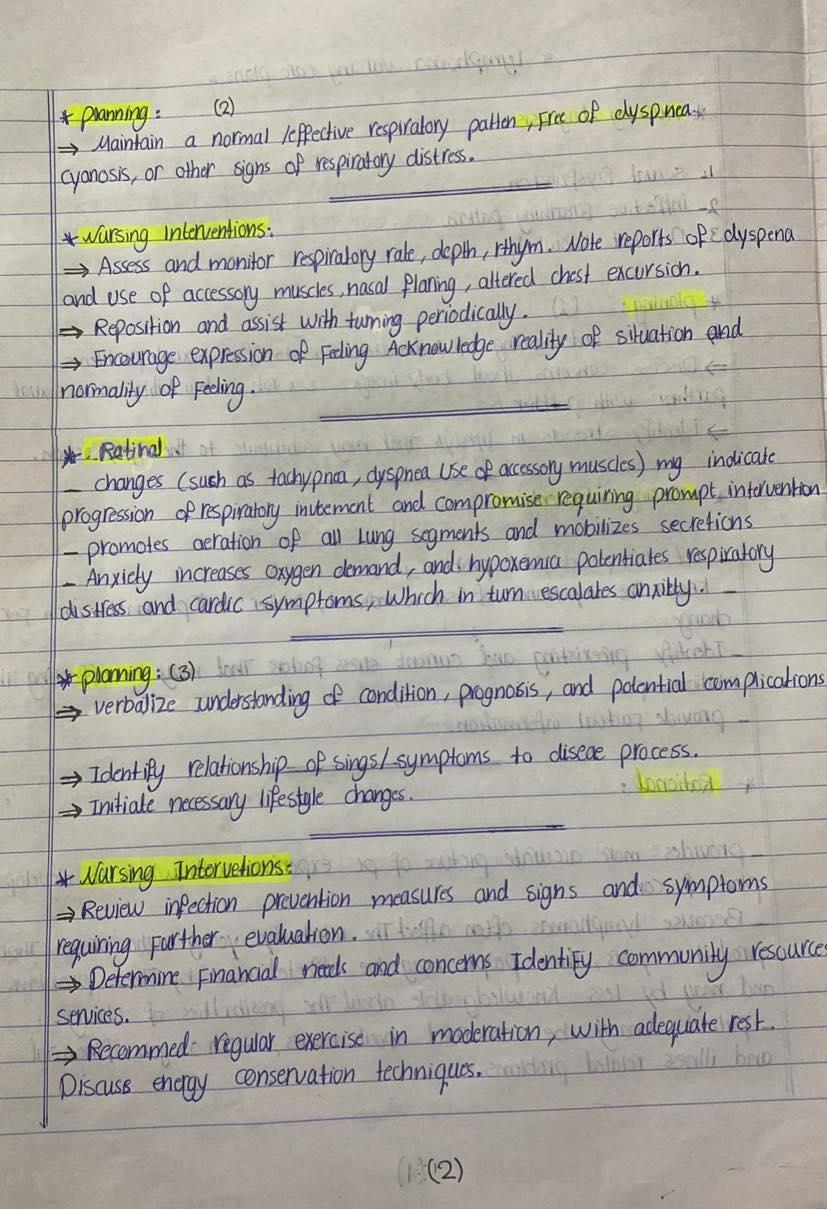 * Planning: (2)
⇒ Maintain a normal /effective respiratory patten, Free of dyspnea.
cyanosis, or other signs of respiratory distress.
* Nursing Interventions:
⇒ Assess and monitor respiratory rate, depth, rthym. Note reports of dyspena
and use of accessory muscles, nasal flaring, altered chest excursion.
⇒ Reposition and assist with turning periodically.
⇒ Encourage expression of Feeling Acknowledge reality of situation and
normality of Feeling.
* Ratinal
- changes (such as tachypnea, dyspnea Use of accessory muscles) my indicate
progression of respiratory and compromise requiring prompt intervention
- promotes aeration of all Lung segments and mobilizes secretions
- Anxiety increases oxygen demand, and hypoxemia potentiates respiratory
distress and cardic symptoms, which in turn escalates anxitty.
* planning: (3)
⇒ verbalize understanding of condition, prognosis, and potential complications
⇒ Identify relationship of sings/symptoms to diseae process.
⇒ Initiate necessary lifestyle changes.
* Nursing Intervetions:
⇒ Review infection prevention measures and signs and symptoms
requiring Further evaluation.
⇒ Determine Financial needs and concerns Identify community resources
services.
⇒ Recommed regular exercise in moderation, with adequate rest.
Discuss energy conservation techniques.
(2)